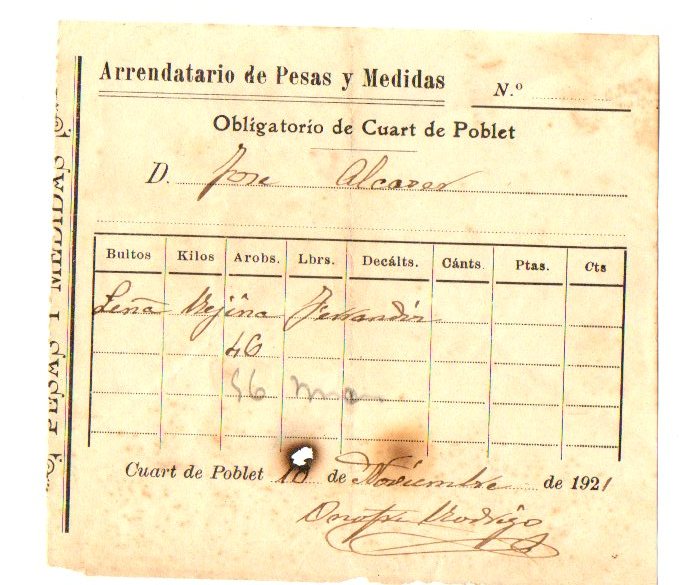 Arrendatario de Pesas y Medidas N.º
Obligatorio de Cuart de Poblet
D. Jose Alcacer
Bultos Kilos Arobs. Lbrs. Decálts. Cánts. Ptas. Cts
Leña Ferrandis
46
56
Cuart de Poblet 10 de Noviembre de 1921
Onofre Rodrigo
PESAS Y MEDIDAS